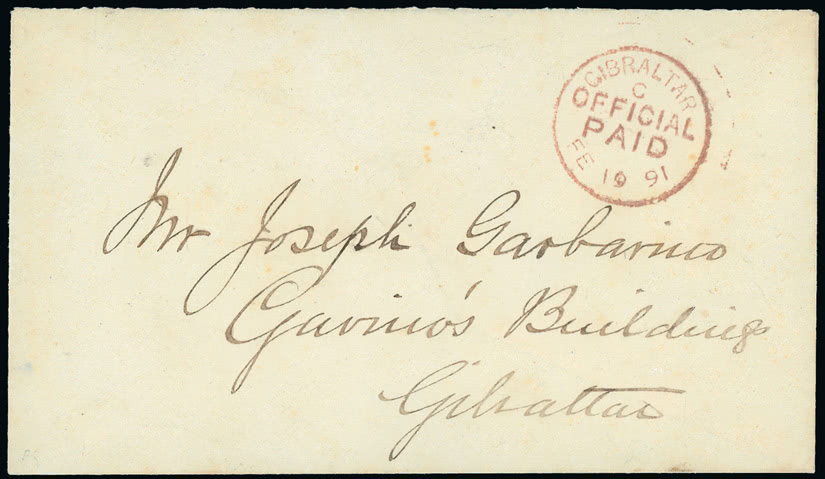 GIBRALTAR
C
OFFICIAL
PAID
FE 19 91
Mr Joseph Garbarino
Gavino's Buildings
Gibraltar